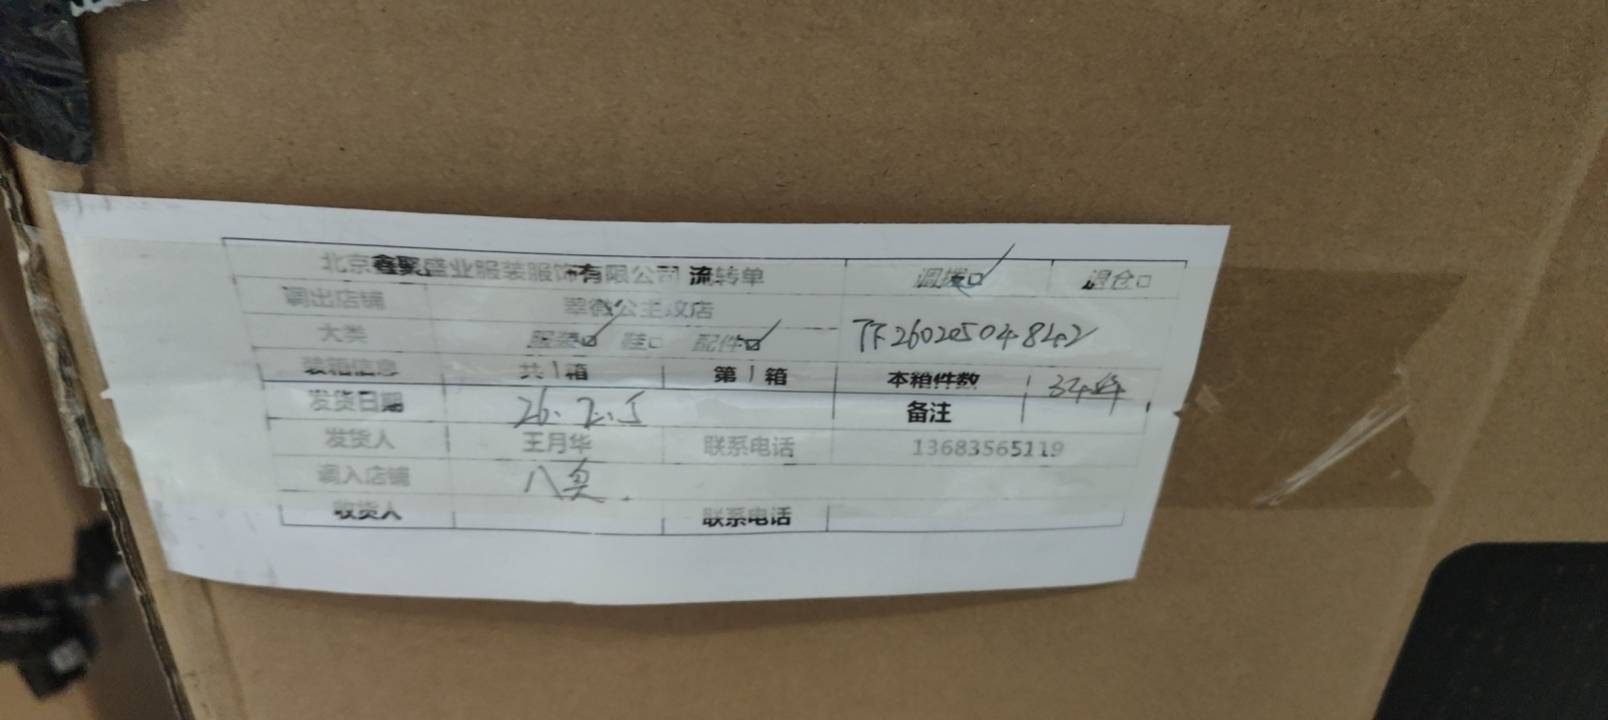 北京鑫聚盛业服装服饰有限公司 流转单 调拨☑ 退仓□
调出店铺 翠微公主坟店
大类 服装☑ 鞋□ 配件☑
装箱信息 共1箱 第1箱 本箱件数
发货日期 26.2.5 备注
发货人 王月华 联系电话 13683565119
调入店铺
收货人 联系电话